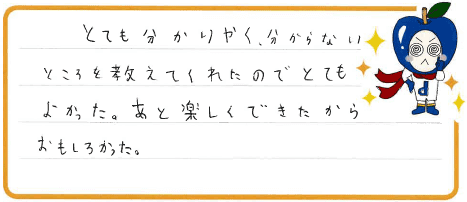 とても分かりやく、分からない
ところを教えてくれたのでとても
よかった。あと楽しくできたから
おもしろかった。
d